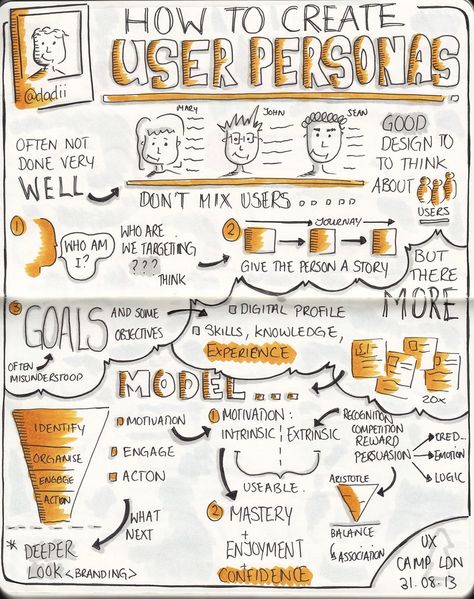 HOW TO CREATE
USER PERSONAS
@dadii
MARY
JOHN
SEAN
OFTEN NOT
DONE VERY
WELL
DON'T MIX USERS.....
GOOD
DESIGN TO
TO THINK
ABOUT
USERS
1
WHO AM
I?
WHO ARE
WE TARGETTING
???
THINK
2
JOURNAY
GIVE THE PERSON A STORY
BUT
THERE
MORE
3
GOALS
AND SOME
OBJECTIVES
OFTEN
MISUNDERSTOOD
DIGITAL PROFILE
SKILLS, KNOWLEDGE,
EXPERIENCE
20x
MODEL...
IDENTIFY
ORGANISE
ENGAGE
ACTION
MOTIVATION
ENGAGE
ACTON
WHAT
NEXT
* DEEPER
LOOK <BRANDING>
1 MOTIVATION:
INTRINSIC
EXTRINSIC
USEABLE.
2
MASTERY
+
ENJOYMENT
+
CONFIDENCE
RECOGNITION
COMPETITION
REWARD
PERSUASION
CRED...
EMOTION
LOGIC
ARISTOTLE
BALANCE
& ASSOCIATION
UX
CAMP LDN
31.08.13